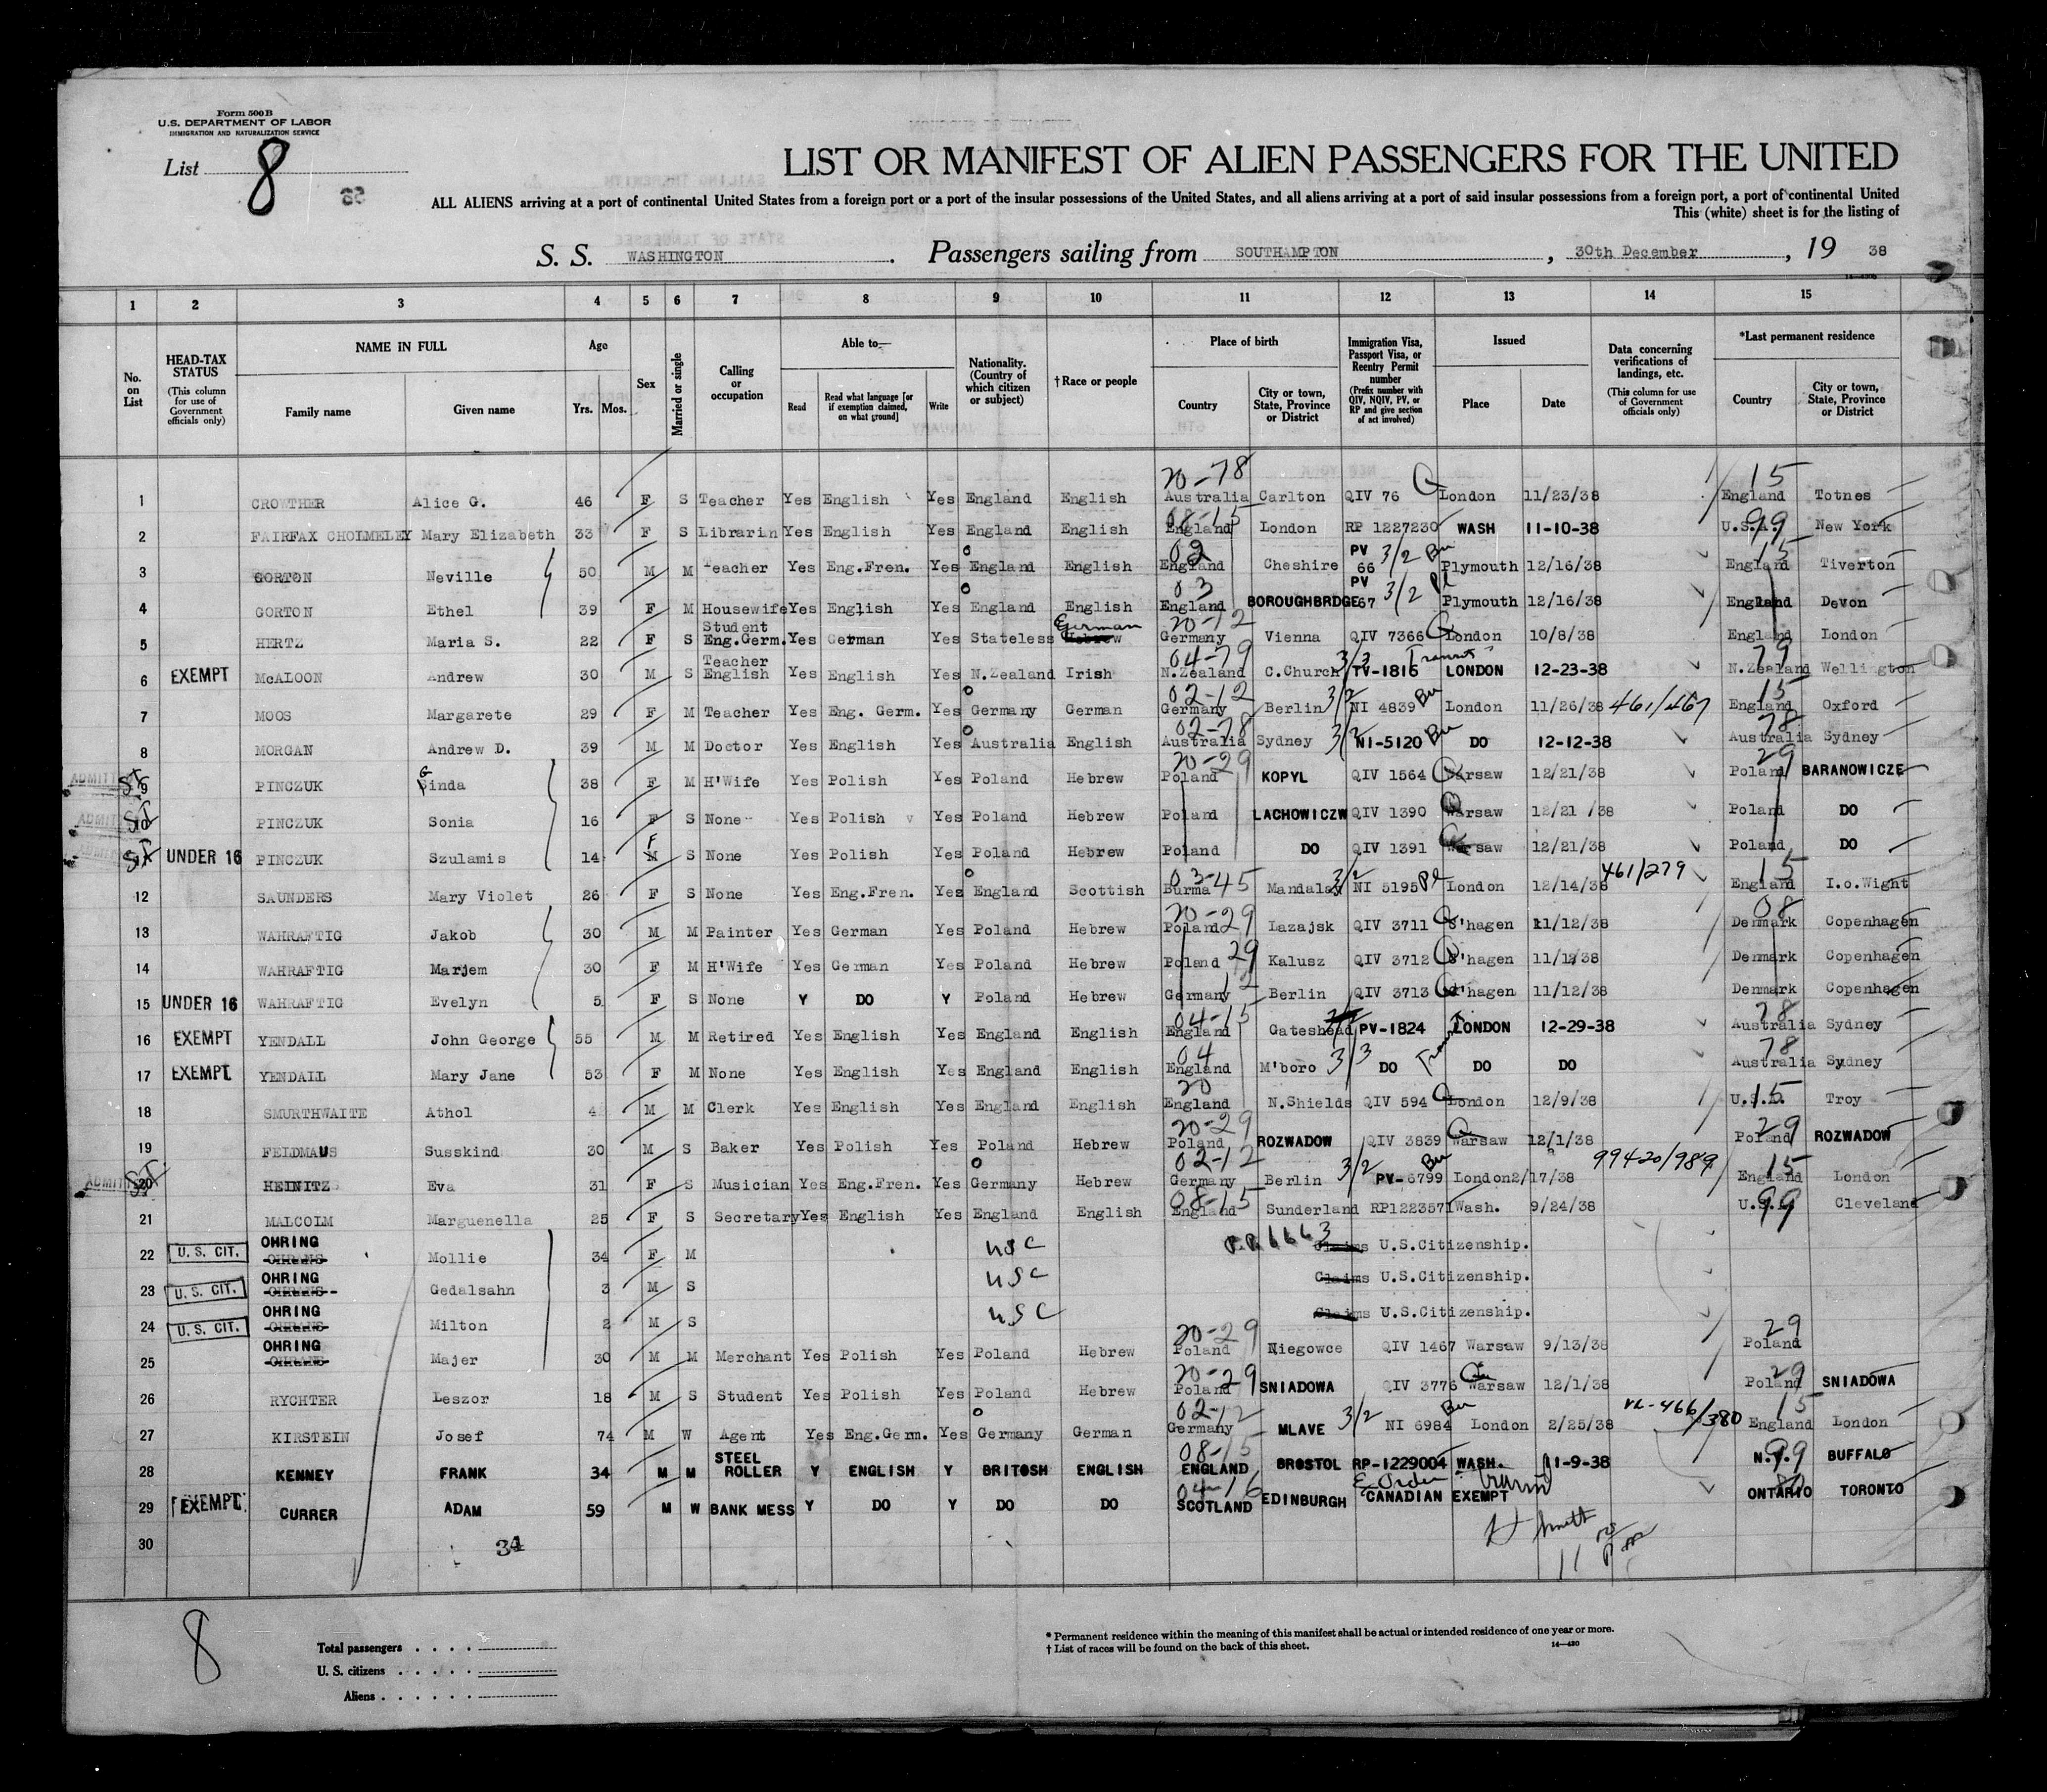 Form 500 B
U.S. DEPARTMENT OF LABOR
IMMIGRATION AND NATURALIZATION SERVICE
List 8
LIST OR MANIFEST OF ALIEN PASSENGERS FOR THE UNITED
ALL ALIENS arriving at a port of continental United States from a foreign port or a port of the insular possessions of the United States, and all aliens arriving at a port of said insular possessions from a foreign port, a port of continental United
This (white) sheet is for the listing of
S. S. WASHINGTON . Passengers sailing from SOUTHAMPTON , 30th December , 19 38
1 2 3 4 5 6 7 8 9 10 11 12 13 14 15
No. on List
HEAD-TAX STATUS (This column for use of Government officials only)
NAME IN FULL
Family name
Given name
Age
Yrs. Mos.
Sex
Married or single
Calling or occupation
Able to—
Read
Read what language [or if exemption claimed, on what ground]
Write
Nationality. (Country of which citizen or subject)
†Race or people
Place of birth
Country
City or town, State, Province or District
Immigration Visa, Passport Visa, or Reentry Permit number (Prefix number with QIV, NQIV, PV, or RP and give section of act involved)
Issued
Place
Date
Data concerning verifications of landings, etc. (This column for use of Government officials only)
*Last permanent residence
Country
City or town, State, Province or District
20-78 15
1 CROWTHER Alice G. 46 F S Teacher Yes English Yes England English Australia Carlton QIV 76 London 11/23/38 England Totnes
08-15 99
2 FAIRFAX CHOLMELEY Mary Elizabeth 33 F S Librarin Yes English Yes England English England London RP 1227230 WASH 11-10-38 U.S.A. New York
02 3/2 15
3 GORTON Neville 50 M M Teacher Yes Eng.Fren. Yes England English England Cheshire PV 66 Plymouth 12/16/38 England Tiverton
03 3/2
4 GORTON Ethel 39 F M Housewife Yes English Yes England English England BOROUGHBRDGE PV 67 Plymouth 12/16/38 England Devon
German 20-12
5 HERTZ Maria S. 22 F S Student Eng.Germ. Yes German Yes Stateless Hebrew Germany Vienna QIV 7366 London 10/8/38 England London
04-79 3/3 Transit 79
6 EXEMPT McALOON Andrew 30 M S Teacher English Yes English Yes N.Zealand Irish N.Zealand C.Church TV-1816 LONDON 12-23-38 N.Zealand Wellington
02-12 3/2 461/467 15
7 MOOS Margarete 29 F M Teacher Yes Eng. Germ. Yes Germany German Germany Berlin NI 4839 London 11/26/38 England Oxford
02-78 3/2 78
8 MORGAN Andrew D. 39 M M Doctor Yes English Yes Australia English Australia Sydney NI-5120 DO 12-12-38 Australia Sydney
20-29 29
9 PINCZUK Ginda 38 F M H'Wife Yes Polish Yes Poland Hebrew Poland KOPYL QIV 1564 Warsaw 12/21/38 Poland BARANOWICZE
10 PINCZUK Sonia 16 F S None Yes Polish Yes Poland Hebrew Poland LACHOWICZW QIV 1390 Warsaw 12/21 /38 Poland DO
11 UNDER 16 PINCZUK Szulamis 14 F S None Yes Polish Yes Poland Hebrew Poland DO QIV 1391 Warsaw 12/21/38 Poland DO
03-45 3/2 461/279 15
12 SAUNDERS Mary Violet 26 F S None Yes Eng.Fren. Yes England Scottish Burma Mandalay NI 5195 London 12/14/38 England I.o.Wight
20-29 08
13 WAHRAFTIG Jakob 30 M M Painter Yes German Yes Poland Hebrew Poland Lazajsk QIV 3711 C'hagen 11/12/38 Denmark Copenhagen
29
14 WAHRAFTIG Marjem 30 F M H'Wife Yes German Yes Poland Hebrew Poland Kalusz QIV 3712 C'hagen 11/12/38 Denmark Copenhagen
12
15 UNDER 16 WAHRAFTIG Evelyn 5 F S None Y DO Y Poland Hebrew Germany Berlin QIV 3713 C'hagen 11/12/38 Denmark Copenhagen
04-15 78
16 EXEMPT YENDALL John George 55 M M Retired Yes English Yes England English England Gateshead PV-1824 LONDON 12-29-38 Australia Sydney
04 3/3 Transit 78
17 EXEMPT YENDALL Mary Jane 53 F M None Yes English Yes England English England M'boro DO DO DO Australia Sydney
20 15
18 SMURTHWAITE Athol M M Clerk Yes English Yes England English England N.Shields QIV 594 London 12/9/38 Troy
20-29 29
19 FELDMAUS Susskind 30 M S Baker Yes Polish Yes Poland Hebrew Poland ROZWADOW QIV 3839 Warsaw 12/1/38 Poland ROZWADOW
02-12 3/2 99420/989 15
20 HEINITZ Eva 31 F S Musician Yes Eng.Fren. Yes Germany Hebrew Germany Berlin PV-6799 London 2/17/38 England London
08-15 99
21 MALCOLM Marguenella 25 F S Secretary Yes English Yes England English England Sunderland RP1223571 Wash. 9/24/38 Cleveland
22 U. S. CIT. OHRING Mollie 34 F M USC Claims U.S.Citizenship.
23 U. S. CIT. OHRING Gedalsahn 3 M S USC Claims U.S.Citizenship.
24 U. S. CIT. OHRING Milton 2 M S USC Claims U.S.Citizenship.
20-29 29
25 OHRING Majer 30 M M Merchant Yes Polish Yes Poland Hebrew Poland Niegowce QIV 1467 Warsaw 9/13/38 Poland
20-29 29
26 RYCHTER Leszor 18 M S Student Yes Polish Yes Poland Hebrew Poland SNIADOWA QIV 3776 Warsaw 12/1/38 Poland SNIADOWA
02-12 3/2 15
27 KIRSTEIN Josef 74 M W Agent Yes Eng.Germ. Yes Germany German Germany MLAVE NI 6984 London 2/25/38 England London
08-15 99
28 KENNEY FRANK 34 M M STEEL ROLLER Y ENGLISH Y BRITOSH ENGLISH ENGLAND BROSTOL RP-1229004 WASH. 11-9-38 BUFFALO
04-16
29 EXEMPT CURRER ADAM 59 M W BANK MESS Y DO Y DO DO SCOTLAND EDINBURGH CANADIAN EXEMPT ONTARIO TORONTO
30 34
8
Total passengers
U. S. citizens
Aliens
* Permanent residence within the meaning of this manifest shall be actual or intended residence of one year or more.
† List of races will be found on the back of this sheet.
14—430